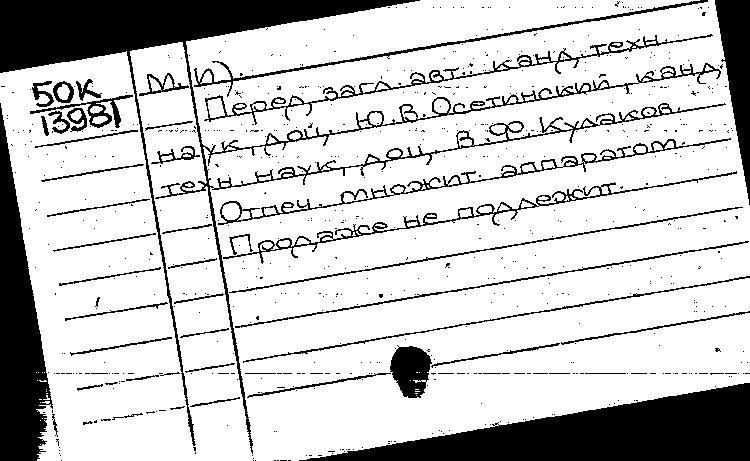 50К
13981
м. и).
Перед. загл. авт.: канд. техн.
наук, доц. Ю.В.Осетинский, канд.
техн. наук, доц. В.Ф.Кулаков.
Отпеч. множит. аппаратом.
Продаже не подлежит.